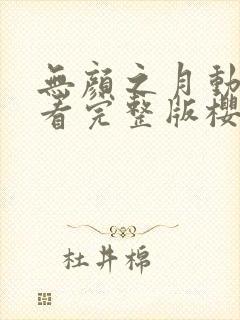 無顔之月動
看完整版櫻
杜井棉